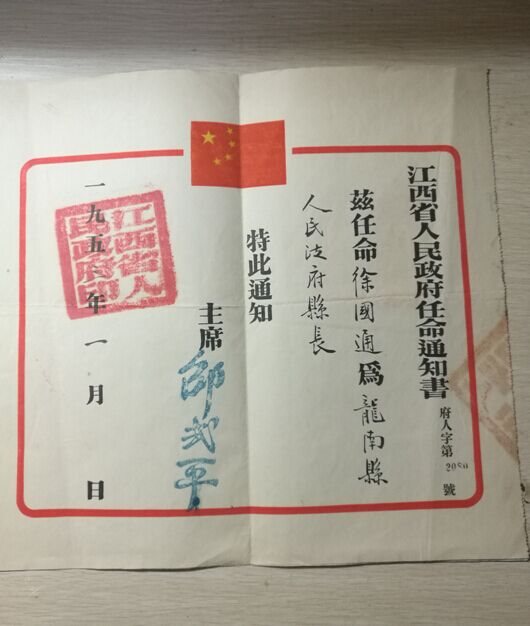 江西省人民政府任命通知書
府人字第2080號
茲任命徐國通爲龍南縣
人民政府縣長
特此通知
主席 邵式平
一九五 年一月 日
江西省人民政府印